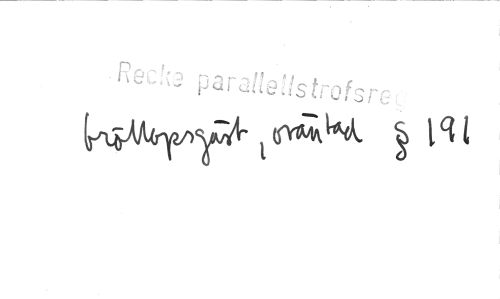 Recke parallellstrofsreg
bröllopsgäst, oväntad § 191